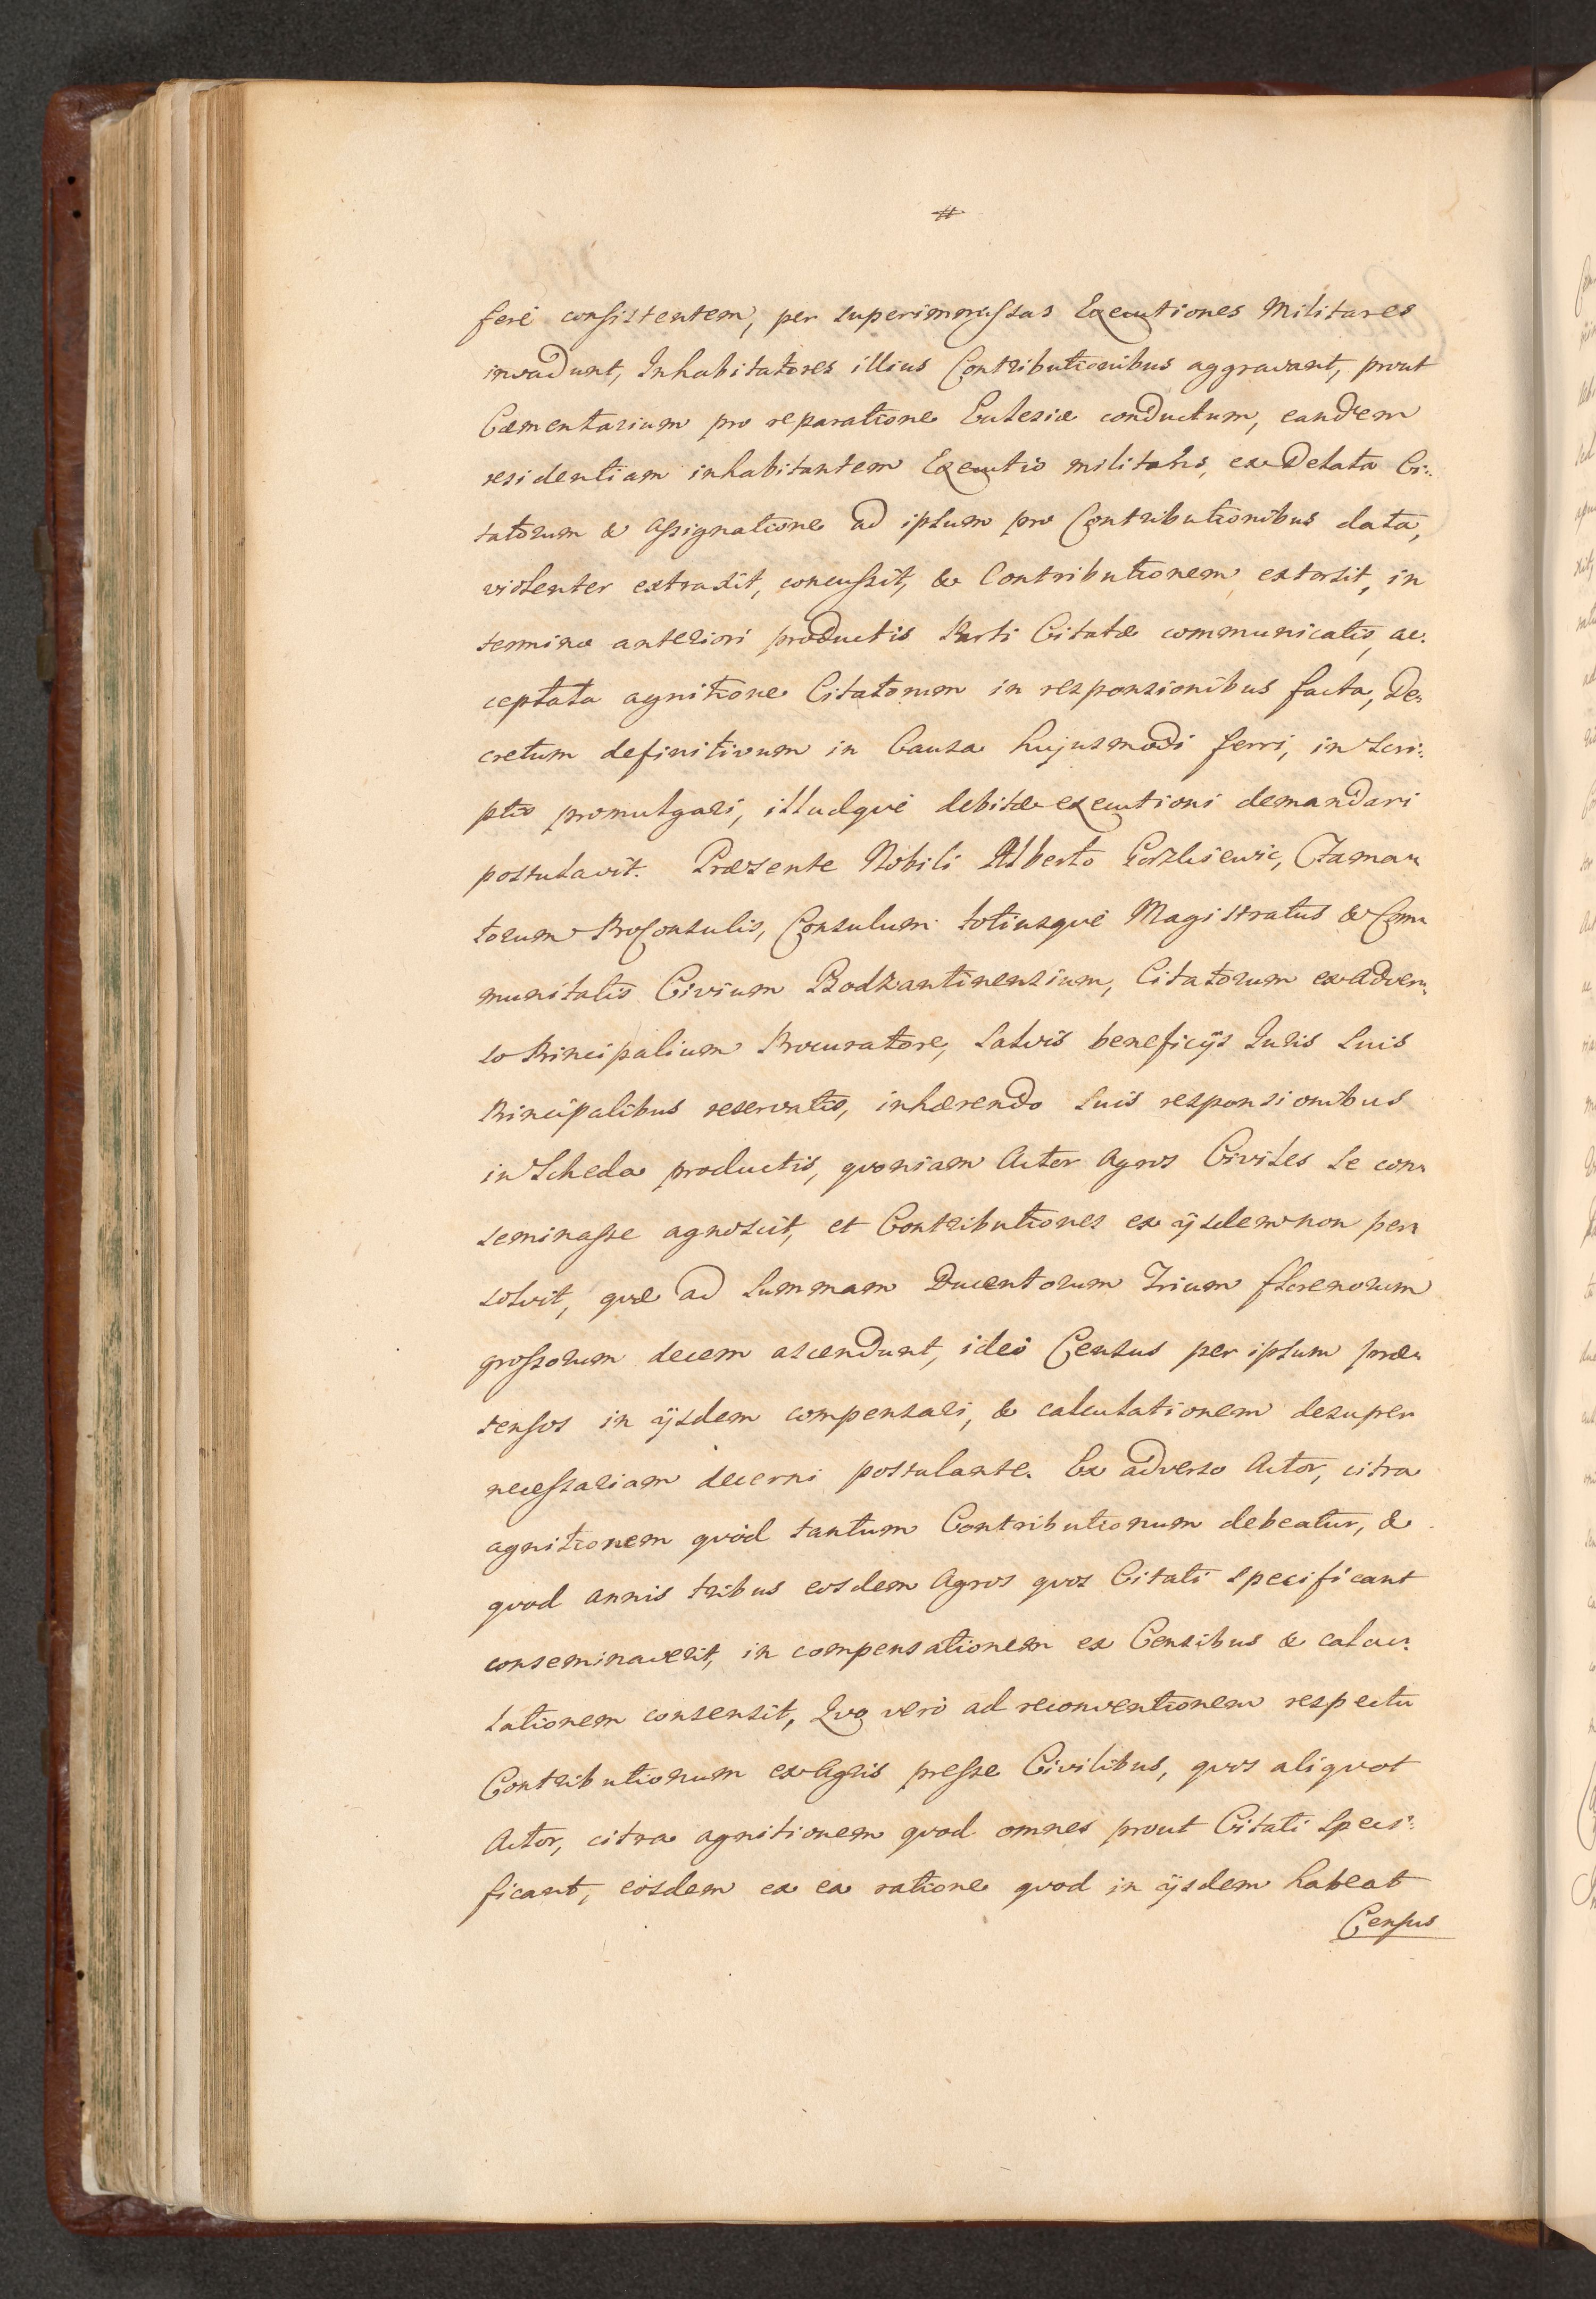 #
ferè consistentem, per superimmissas Executiones Militares
invadunt, Inhabitatores illius Contributionibus aggravant, prout
Cæmentarium pro reparatione Eclesiæ conductum, eandem
residentiam inhabitantem Executio militaris, ex Delata Ci:
tatorum & Assignatione ad ipsum pro Contributionibus data,
violenter extraxit, concussit, & Contributionem extorsit, in
termino anteriori productis Parti Citatæ communicatis, ac:
ceptata agnitione Citatorum in responsionibus facta, De:
cretum definitivum in Causa hujusmodi ferri, in Scri:
pto promulgari, illudquè debitæ executioni demandari
postulavit. Præsente Nobili Alberto Gorzlisiewic, Fama:
torum ProConsulis, Consulum totiusquè Magistratus & Com:
munitatis Civium Bodzantinensium, Citatorum ex Adver:
so Principalium Procuratore, Salvis beneficijs Iuris Suis
Principalibus reservatis, inhærendo Suis responsionibus
in Scheda productis, quoniam Actor Agros Civiles Se con:
seminasse agnoscit, et Contributiones ex ijsdem non per:
solvit, quæ ad Summam Ducentorum Trium florenorum
grossorum decem ascendunt, ideò Census per ipsum præ:
tensos in ijsdem compensari, & calculationem desuper
necessariam decerni postulante. Ex adverso Actor, citra
agnitionem quòd tantum Contributionum debeatur, &
quod annis tribus eosdem Agros quos Citati specificant
conseminaverit, in compensationem ex Censibus & calcu:
lationem consensit, Quo verò ad reconventionem respectu
Contributionum ex Agris presse Civilibus, quos aliquot
Actor, citra agnitionem quod omnes prout Citati Speci:
ficant, eosdem ex ea ratione quod in ijsdem habeat
Census